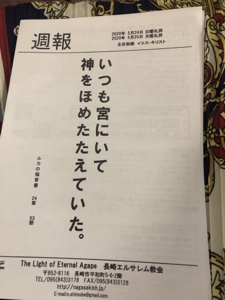 週報
2020年 5月24日 日曜礼拝
2020年 5月25日 月曜礼拝
主任牧師 イエス・キリスト
いつも宮にいて
神をほめたたえていた。
ルカの福音書 24章 53節
The Light of Eternal Agape 長崎エルサレム教会
〒852-8116 長崎市平和町5-6-2階
TEL/095(843)3178 FAX/095(843)8126
http://nagasakish.jp/